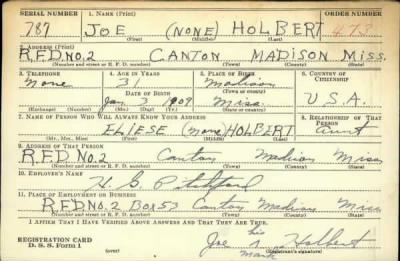 SERIAL NUMBER 1. NAME (Print) ORDER NUMBER
787 JOE (NONE) HOLBERT 473
(First) (Middle) (Last)
2. ADDRESS (Print)
R.F.D. NO. 2 CANTON MADISON MISS.
(Number and street or R. F. D. number) (Town) (County) (State)
3. TELEPHONE 4. AGE IN YEARS 5. PLACE OF BIRTH 6. COUNTRY OF CITIZENSHIP
None 31 Madison
DATE OF BIRTH (Town or county)
Jan 3 1909 Miss. U.S.A.
(Exchange) (Number) (Mo.) (Day) (Yr.) (State or country)
7. NAME OF PERSON WHO WILL ALWAYS KNOW YOUR ADDRESS 8. RELATIONSHIP OF THAT PERSON
ELIESE (None) HOLBERT Aunt
(Mr., Mrs., Miss) (First) (Middle) (Last)
9. ADDRESS OF THAT PERSON
R.F.D. No. 2 Canton Madison Miss
(Number and street or R. F. D. number) (Town) (County) (State)
10. EMPLOYER'S NAME
Pitchford
11. PLACE OF EMPLOYMENT OR BUSINESS
R.F.D. No. 2 Box 53 Canton Madison Miss
(Number and street or R. F. D. number) (Town) (County) (State)
I AFFIRM THAT I HAVE VERIFIED ABOVE ANSWERS AND THAT THEY ARE TRUE.
REGISTRATION CARD his
D. S. S. Form 1 Joe x Holbert
(over) mark (Registrant's signature)